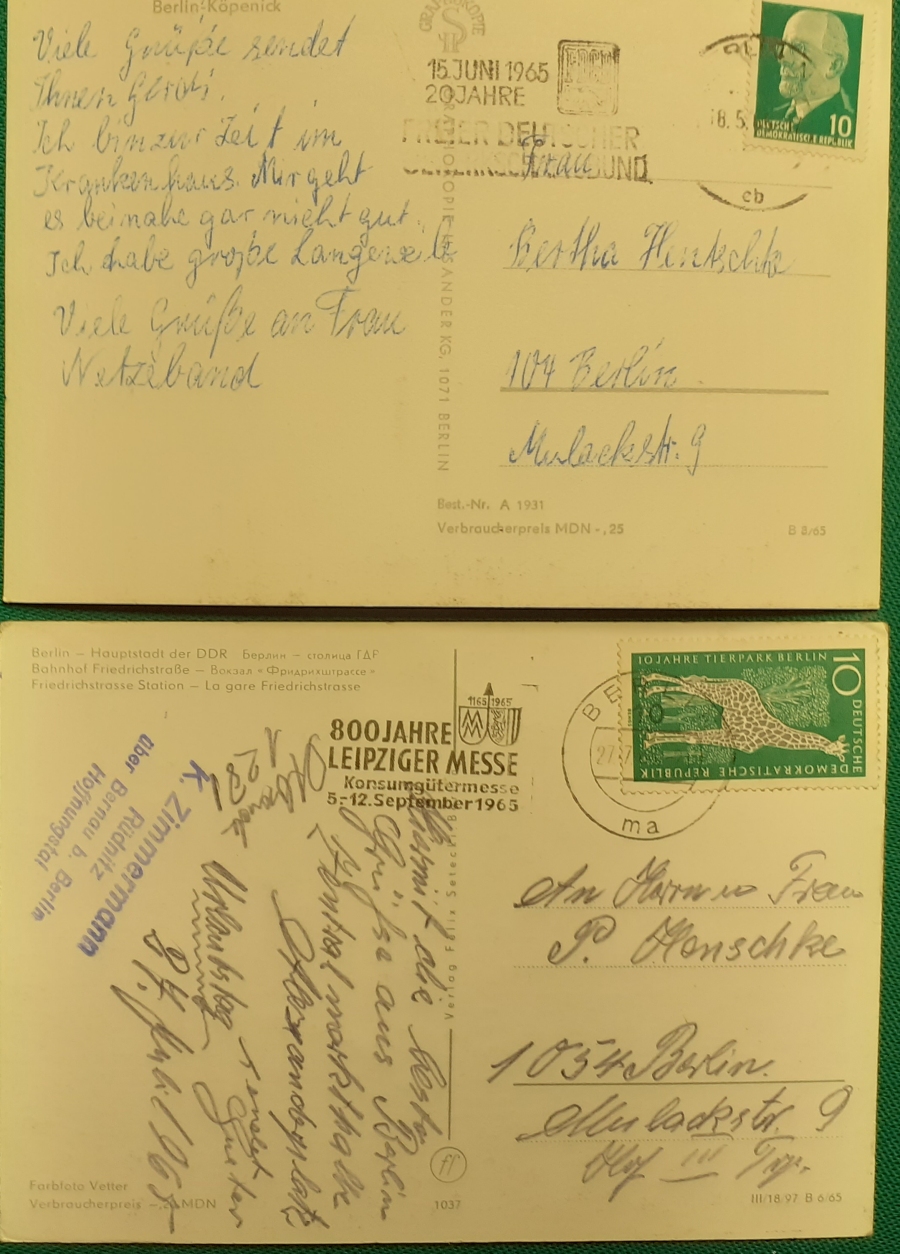 Berlin-Köpenick
Viele Grüße sendet
Ihnen
Ich bin zur Zeit im
Krankenhaus. Mir geht
es beinahe gar nicht gut.
Ich habe große Langeweile
Viele Grüße an Frau
Netzeband
15. JUNI 1965
20 JAHRE
FDGB
FREIER DEUTSCHER
GEWERKSCHAFTSBUND
18.5.
eb
10
DEUTSCHE
DEMOKRATISCHE REPUBLIK
Frau
Bertha Hentschke
104 Berlin
Mulackstr. 9
ANDER KG, 1071 BERLIN
Best.-Nr. A 1931
Verbraucherpreis MDN -,25
B 8/65
Berlin – Hauptstadt der DDR Берлин – столица ГДР
Bahnhof Friedrichstraße – Вокзал «Фридрихштрассе»
Friedrichstrasse Station – La gare Friedrichstrasse
1165 1965
800 JAHRE
LEIPZIGER MESSE
Konsumgütermesse
5.-12. September 1965
BE
27.7.
ma
10 JAHRE TIERPARK BERLIN
10
DEUTSCHE
DEMOKRATISCHE REPUBLIK
K. Zimmermann
Rüdnitz
über Bernau b. Berlin
Hoffnungstal
die besten
Grüße aus Berlin
Zentralmarkthalle
Alexanderplatz
sendet
Urlaubstag
27. Juli 1965
An Herrn u Frau
P. Henschke
1054 Berlin.
Mulackstr. 9
Hof III Tr.
Verlag Felix Setecki
Farbfoto Vetter
Verbraucherpreis MDN
1037
III/18/97 B 6/65